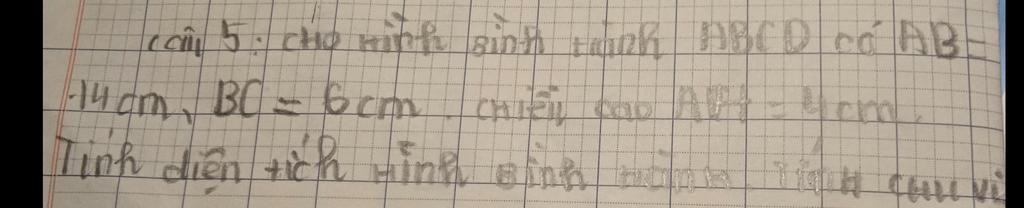 câu 5: cho hình bình hành ABCD có AB =
14 cm, BC = 6 cm. chiều cao AH = 4 cm.
Tính diện tích hình bình hành. Tính chu vi